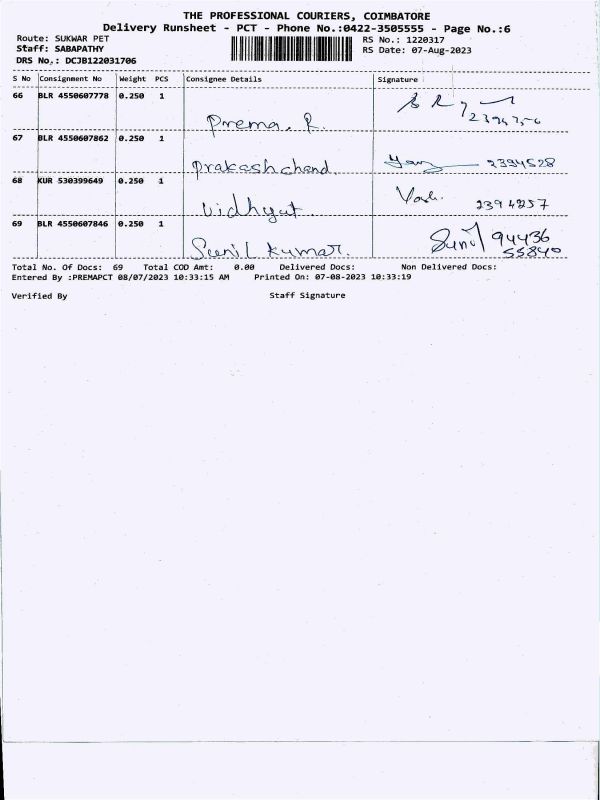 THE PROFESSIONAL COURIERS, COIMBATORE
Delivery Runsheet - PCT - Phone No.:0422-3505555 - Page No.:6
Route: SUKWAR PET RS No.: 1220317
Staff: SABAPATHY RS Date: 07-Aug-2023
DRS No.: DCJB122031706
S No Consignment No Weight PCS Consignee Details Signature
66 BLR 4550607778 0.250 1
Prema. R.
67 BLR 4550607862 0.250 1
Prakash chand. 2394528
68 KUR 530399649 0.250 1
Vidhyut. 2394257
69 BLR 4550607846 0.250 1
Sunil Kumar. Sunil 94436
55840
Total No. Of Docs: 69 Total COD Amt: 0.00 Delivered Docs: Non Delivered Docs:
Entered By :PREMAPCT 08/07/2023 10:33:15 AM Printed On: 07-08-2023 10:33:19
Verified By Staff Signature